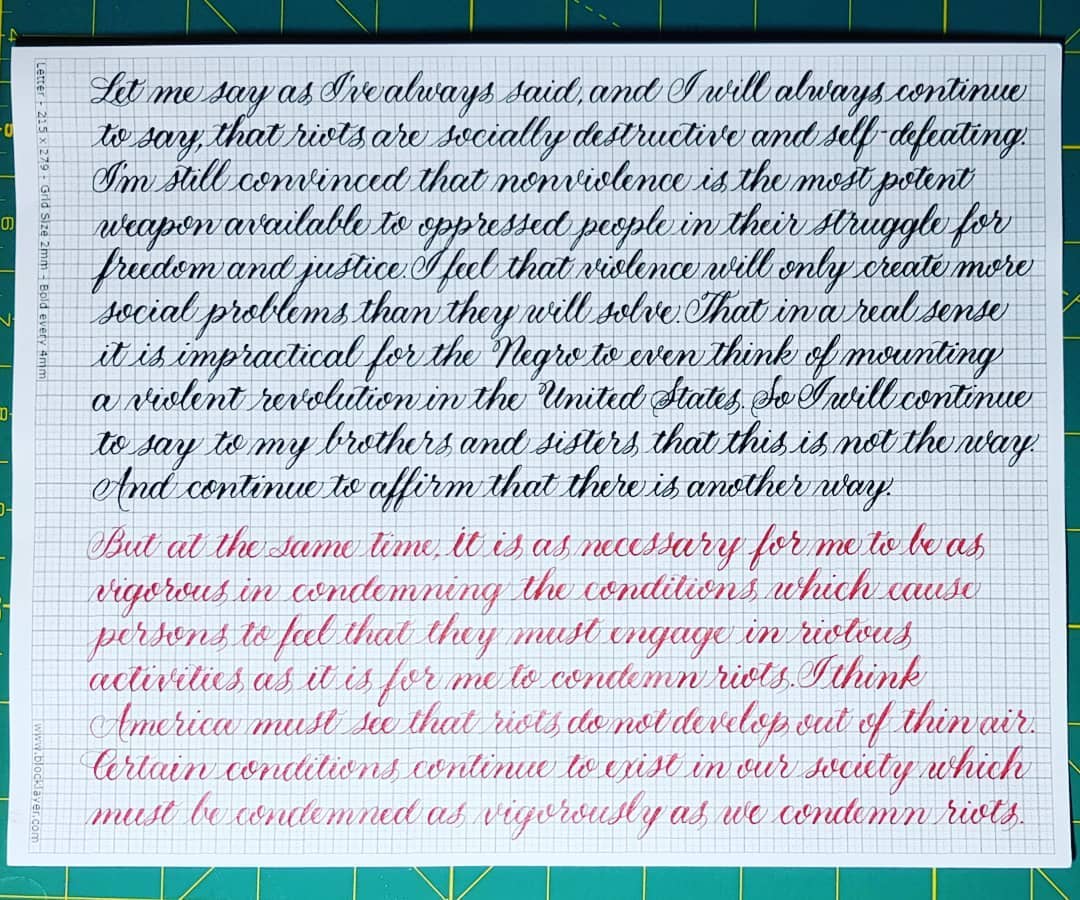 Let me say as I've always said, and I will always continue
to say, that riots are socially destructive and self-defeating.
I'm still convinced that nonviolence is the most potent
weapon available to oppressed people in their struggle for
freedom and justice. I feel that violence will only create more
social problems than they will solve. That in a real sense
it is impractical for the Negro to even think of mounting
a violent revolution in the United States. So I will continue
to say to my brothers and sisters that this is not the way.
And continue to affirm that there is another way.
But at the same time, it is as necessary for me to be as
vigorous in condemning the conditions which cause
persons to feel that they must engage in riotous
activities as it is for me to condemn riots. I think
America must see that riots do not develop out of thin air.
Certain conditions continue to exist in our society which
must be condemned as vigorously as we condemn riots.
Letter - 215 x 279 - Grid Size 2mm - Bold every 4mm
www.blocklayer.com